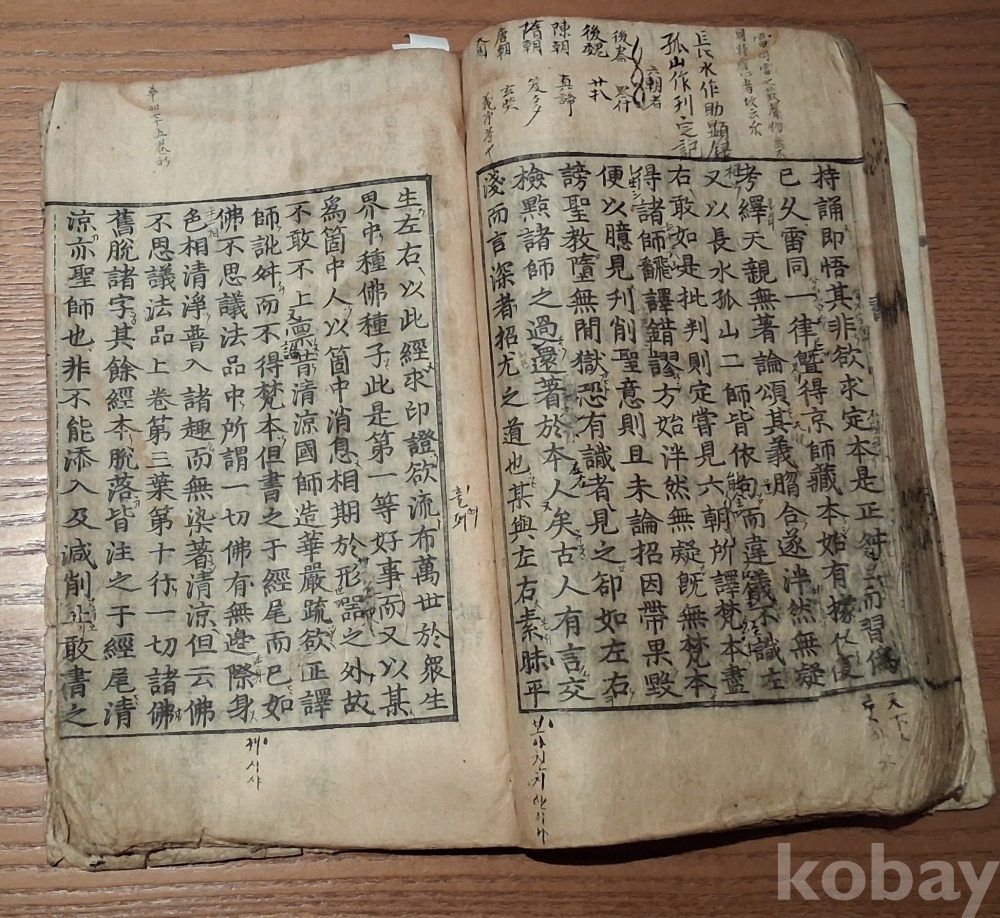 長水作助顯錄
孤山作刊定記
六朝者
後秦 羅什
後魏
陳朝 真諦
隋朝 笈多
唐朝 玄奘
義淨等
持誦即悟其非欲求定本是正舛
已久雷同一律曁得京師藏本始有據依復
考繹天親無著論頌其義脗合遂泮然無疑
又以長水孤山二師皆依句而違義不識左
右敢如是批判則定嘗見六朝所譯梵本盡
得諸師飜譯錯謬方始泮然無疑旣無梵本
便以臆見刋削聖意則且未論招因帶果毀
謗聖教墮無間獄恐有識者見之卻如左右
檢點諸師之過還著於本人矣古人有言交
淺而言深者招尤之道也某與左右素昧平
보아진치
生左右以此經求印證欲流布萬世於衆生
界中種佛種子此是第一等好事而又以某
爲箇中人以箇中消息相期於形器之外故
不敢不上禀昔清涼國師造華嚴疏欲正譯
師訛舛而不得梵本但書之于經尾而已如
佛不思議法品中所謂一切佛有無邊際身
色相清淨普入諸趣而無染著清涼但云佛
不思議法品上卷第三葉第十行一切諸佛
舊脫諸字其餘經本脫落皆注之于經尾清
涼亦聖師也非不能添入及減削止敢書之
계시사
kobay